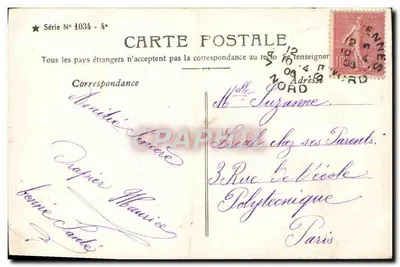 ★ Série Nº 1034 - 4ᵉ
CARTE POSTALE
Tous les pays étrangers n'acceptent pas la correspondance au recto se renseigner
Correspondance
Adresse
Amitié
Drapier Maurice
bonne Santé
Mˡˡᵉ Suzanne
chez ses Parents.
3 Rue de l'école
Polytecnique
Paris
12
10-4
05
NORD
12
NORD